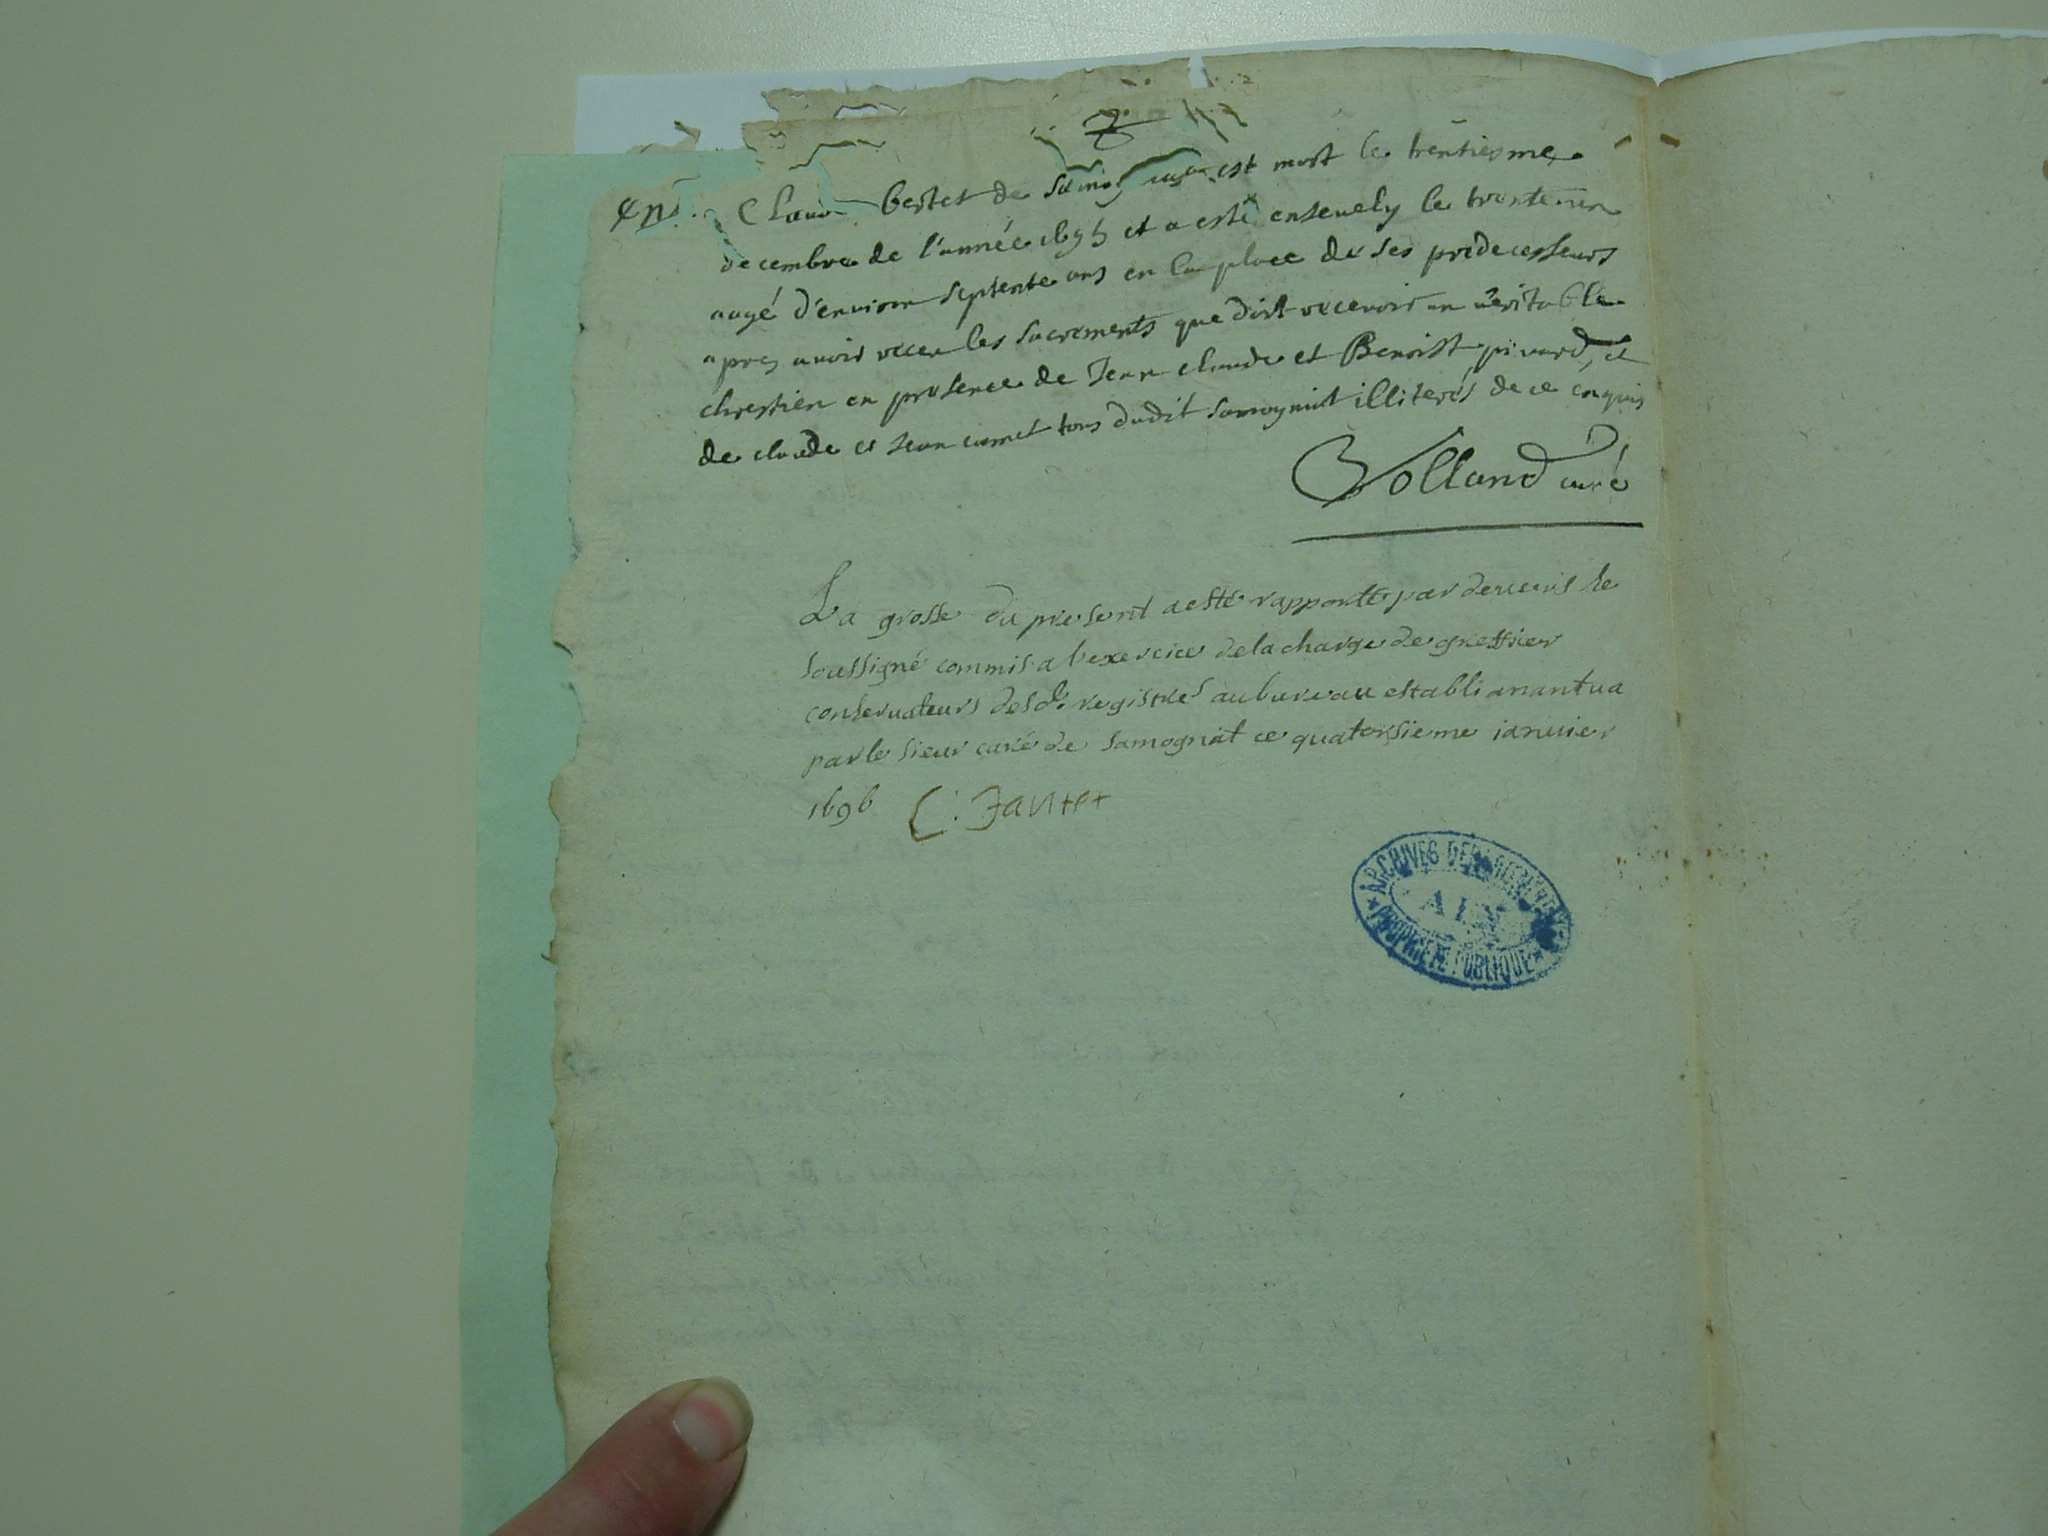 Claude bertet de samog est mort le trentiesme
decembre de l'année 1695 et a esté ensevely le trente un
aagé d'environ septente ans en la place de ses predecesseurs
apres avoir receu les sacrements que doit recevoir un veritable
chrestien en presence de Jean claude et Benoist pivard, et
de claude et Jean tous dudit samogniat illiterés de ce enquis
Volland curé
La grosse du present a esté rapporté par devers le
soussigné commis a l'exercice de la charge de greffier
conservateurs desd. registres au bureau establi a nantua
par le sieur curé de Samogniat ce quatorsieme ianvier
1696 C: Jantet
ARCHIVES DEPARTEMENTALES
AIN
PROPRIETE PUBLIQUE